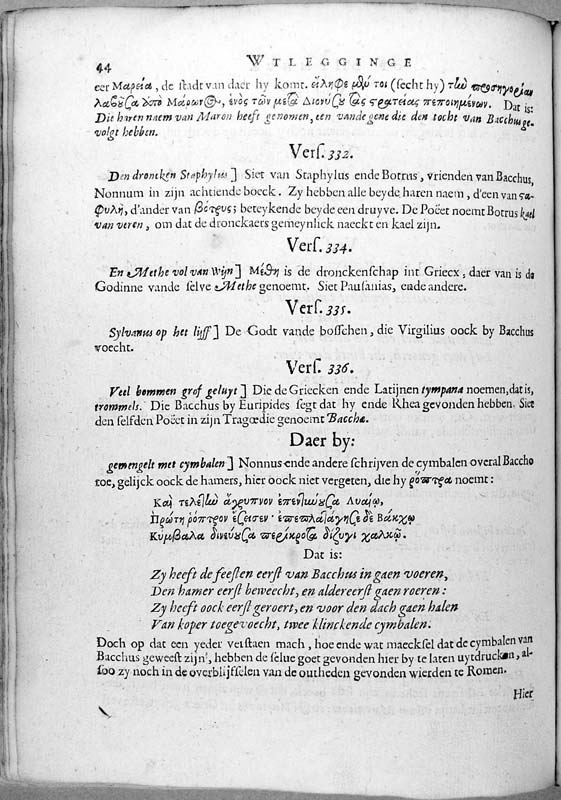 44 WTLEGGINGE
eer Μαρεία, de stadt van daer hy komt. εἴληφε μὲν τοι (secht hy) τὴν προσηγορίαν
λαβοῦσα ἀπὸ Μάρωνος, ἑνὸς τῶν μετὰ Διονύσου τὰς στρατείας πεποιημένων. Dat is:
Die haren naem van Maron heeft genomen, een vande gene die den tocht van Bacchus ge-
volgt hebben.
Vers. 332.
Den droncken Staphylus] Siet van Staphylus ende Botrus, vrienden van Bacchus,
Nonnum in zijn achtiende boeck. Zy hebben alle beyde haren naem, d'een van στα-
φυλὴ, d'ander van βότρυς; beteykende beyde een druyve. De Poëet noemt Botrus kael
van veren, om dat de dronckaers gemeynlick naeckt en kael zijn.
Vers. 334.
En Methe vol van Wijn] Μέθη is de dronckenschap int Griecx, daer van is de
Godinne vande selve Methe genoemt. Siet Pausanias, ende andere.
Vers. 335.
Sylvanus op het lijff] De Godt vande bosschen, die Virgilius oock by Bacchus
voecht.
Vers. 336.
Veel bommen grof geluyt] Die de Griecken ende Latijnen tympana noemen, dat is,
trommels. Die Bacchus by Euripides segt dat hy ende Rhea gevonden hebben. Siet
den selfden Poëet in zijn Tragœdie genoemt Bacchæ.
Daer by:
gemengelt met cymbalen] Nonnus ende andere schrijven de cymbalen overal Baccho
toe, gelijck oock de hamers, hier oock niet vergeten, die hy ῥόπτρα noemt:
Καὶ τελετὴν ἄγρυπνον ἐπεντύνουσα Λυαίῳ,
Πρώτη ῥόπτρον ἔσεισεν· ἐπεπλατάγησε δὲ Βάκχῳ
Κύμβαλα δινεύουσα περίκροτα δίζυγι χαλκῷ.
Dat is:
Zy heeft de feesten eerst van Bacchus in gaen voeren,
Den hamer eerst beweecht, en aldereerst gaen roeren:
Zy heeft oock eerst geroert, en voor den dach gaen halen
Van koper toegevoecht, twee klinckende cymbalen.
Doch op dat een yeder verstaen mach, hoe ende wat maecksel dat de cymbalen van
Bacchus geweest zijn, hebben de selue goet gevonden hier by te laten uytdrucken, al-
soo zy noch in de overblijfselen van de outheden gevonden wierden te Romen.
Hier